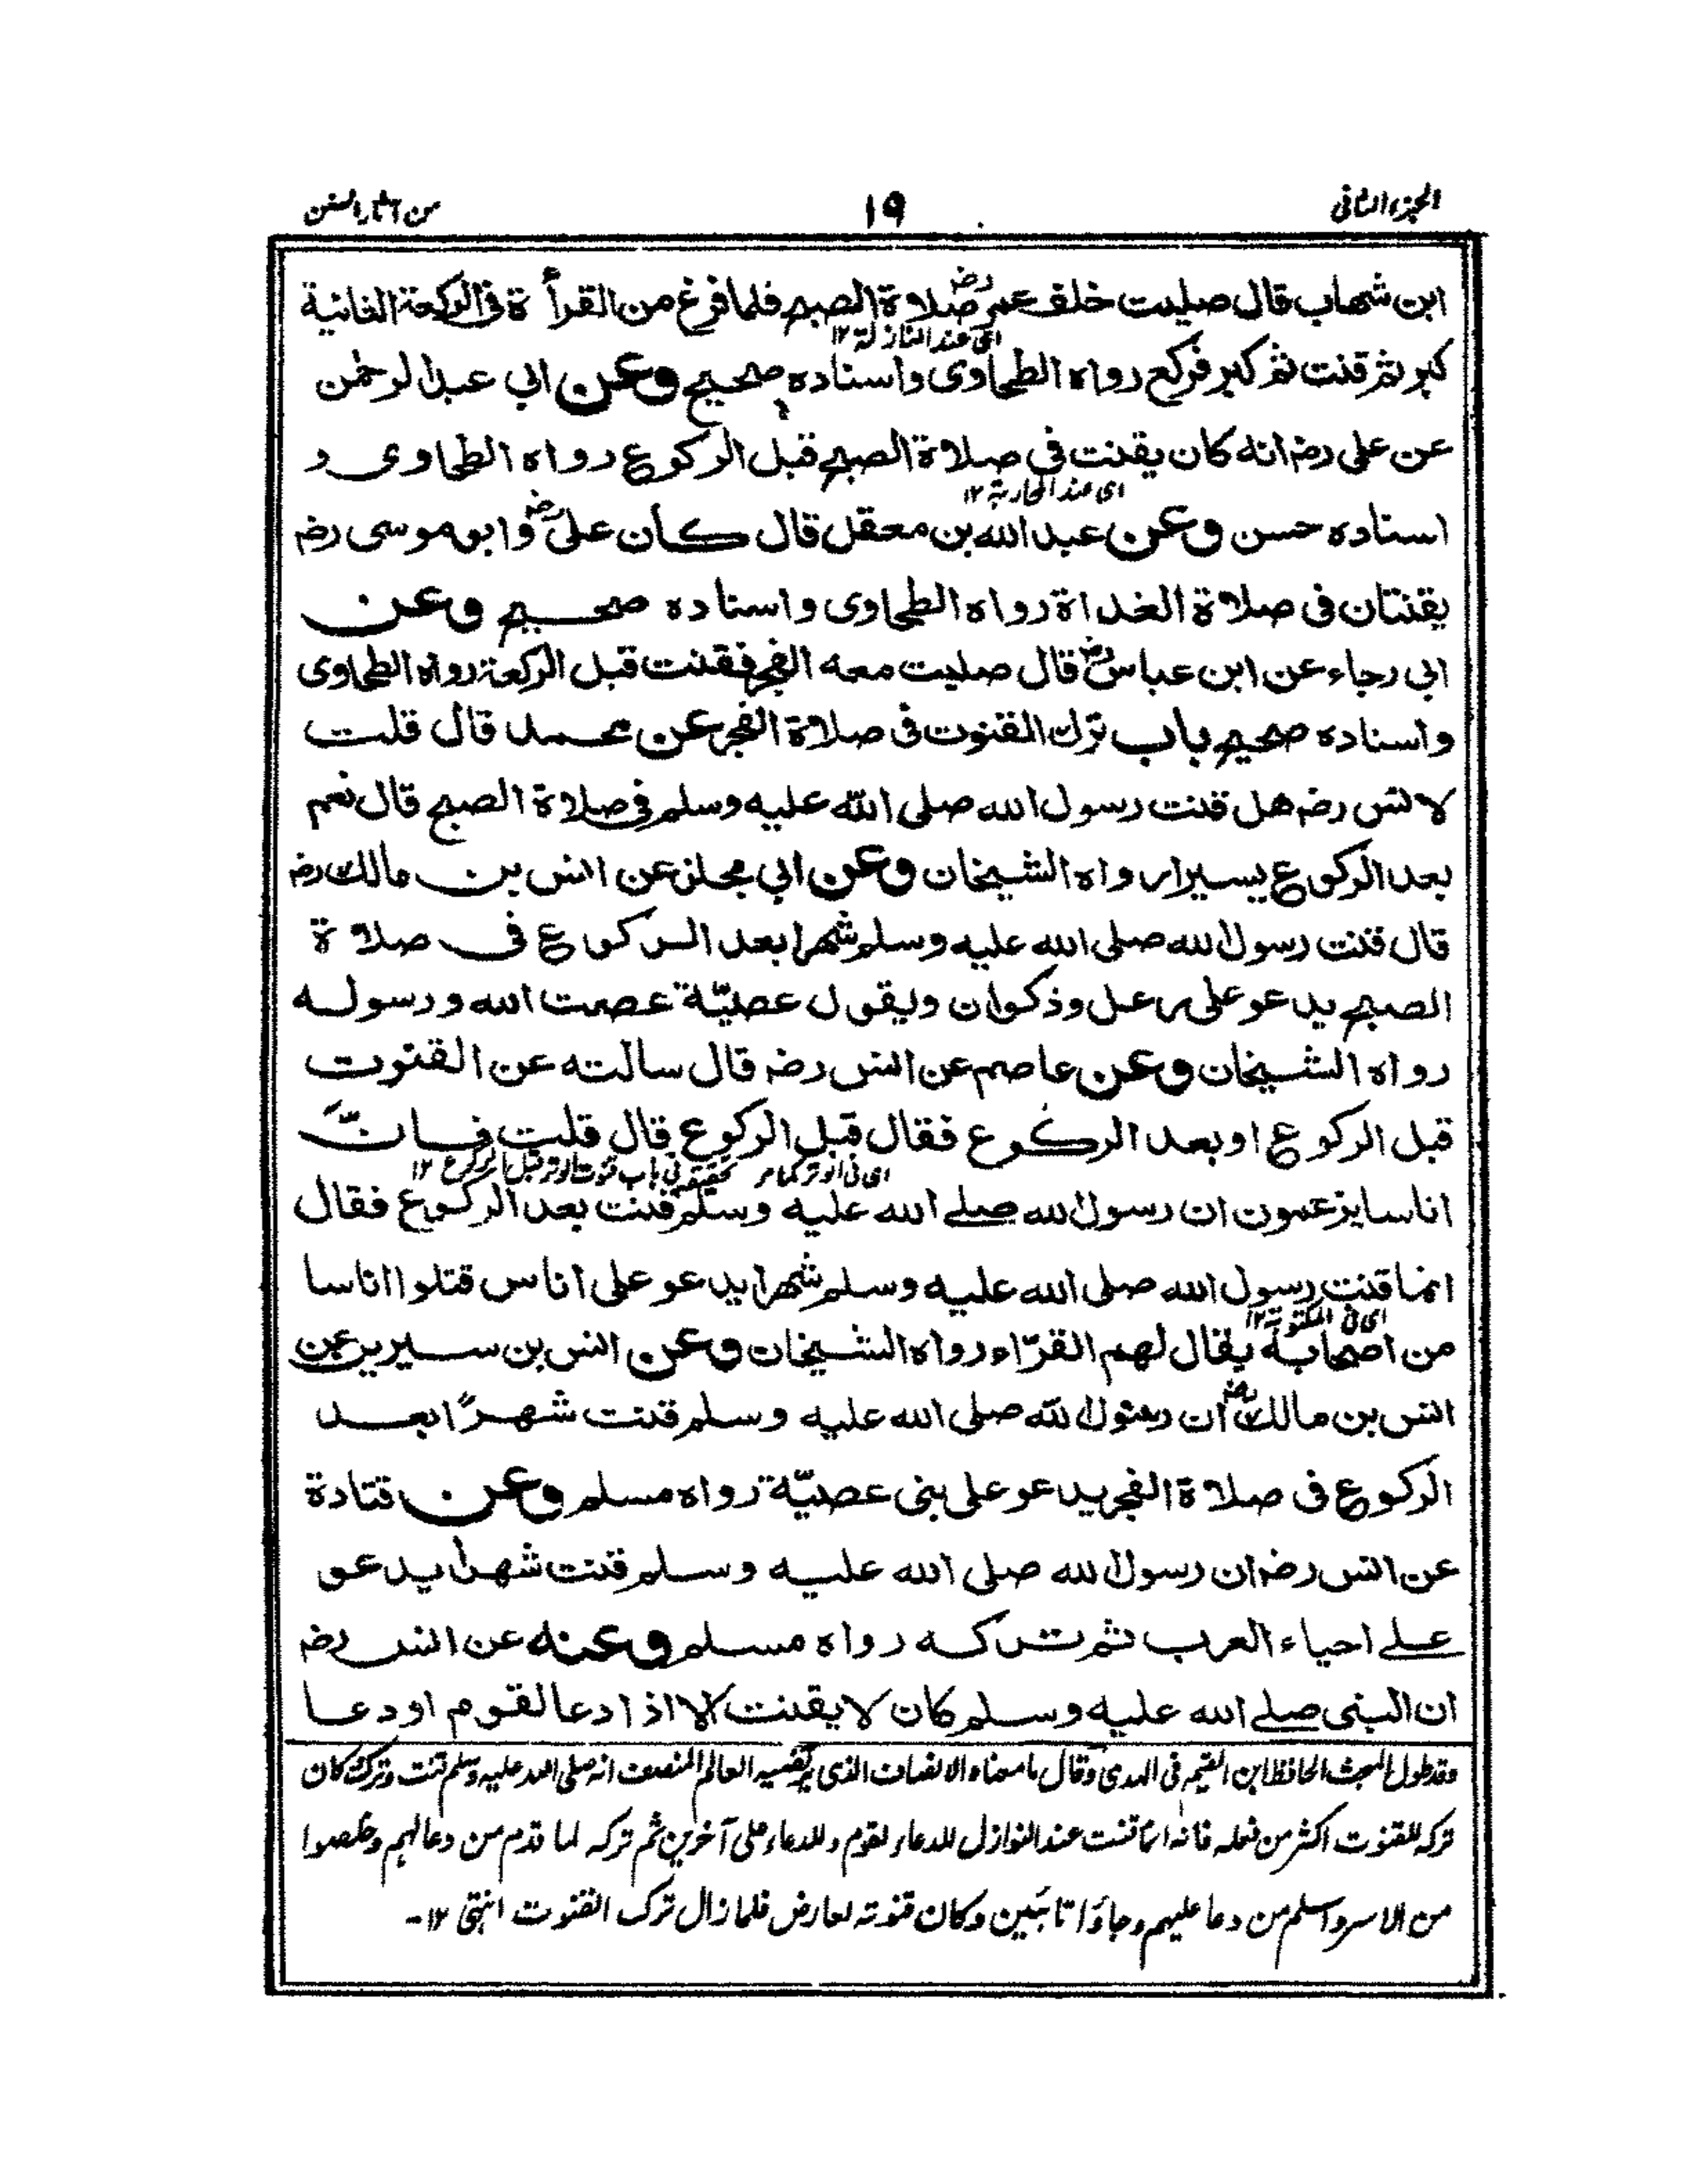 الجزء الثانی
۱۹
من آثار السنن
ابن شهاب قال صلیت خلف عمر رضـ صلاة الصبح فلما فرغ من القرأة فی الركعة الثانیة
ای عند النازلة ۱۲
كبر ثم قنت ثم كبر فركع رواه الطحاوی واسناده صحیح وعن ابی عبد الرحمٰن
عن علی رضـ انه كان یقنت فی صلاة الصبح قبل الركوع رواه الطحاوی و
ای عند المحاربة ۱۲
اسناده حسن وعن عبد الله بن معقل قال كان علی رضـ وابو موسی رضـ
یقنتان فی صلاة الغداة رواه الطحاوی واسناده صحیح وعن
ابی رجاء عن ابن عباس رضـ قال صلیت معه الفجر فقنت قبل الركعة رواه الطحاوی
واسناده صحیح باب ترك القنوت فی صلاة الفجر عن محمد قال قلت
لانس رضـ هل قنت رسول الله صلی الله علیه وسلم فی صلاة الصبح قال نعم
بعد الركوع یسیرا رواه الشیخان وعن ابی مجلز عن انس بن مالك رضـ
قال قنت رسول الله صلی الله علیه وسلم شهرا بعد الركوع فی صلاة
الصبح یدعو علی رعل وذكوان ویقول عصیّة عصت الله ورسوله
رواه الشیخان وعن عاصم عن انس رضـ قال سالته عن القنوت
قبل الركوع او بعد الركوع فقال قبل الركوع قال قلت فانّ
ای فی الوتر كما مر تحقیقه فی باب قنوت الوتر قبل الركوع ۱۲
اناسا یزعمون ان رسول الله صلے الله علیه وسلم قنت بعد الركوع فقال
انما قنت رسول الله صلی الله علیه وسلم شهرا یدعو علی اناس قتلوا اناسا
ای فی المكتوبة ۱۲
من اصحابه یقال لهم القرّاء رواه الشیخان وعن انس بن سیرین عن
انس بن مالك رضـ ان رسول الله صلی الله علیه وسلم قنت شهرًا بعد
الركوع فی صلاة الفجر یدعو علی بنی عصیّة رواه مسلم وعن قتادة
عن انس رضـ ان رسول الله صلی الله علیه وسلم قنت شهرا یدعو
علے احیاء العرب ثم تركه رواه مسلم وعنه عن انس رضـ
ان النبی صلے الله علیه وسلم كان لا یقنت الا اذا دعا لقوم او دعا
وقد طول البحث الحافظ ابن القیم فی الهدی وقال ما معناه الانصاف الذی یرتضیه العالم المنصف انه صلی الله علیه وسلم قنت وترك وكان
تركه للقنوت اكثر من فعله فانه انما قنت عند النوازل للدعاء لقوم وللدعاء علی آخرین ثم تركه لما قدم من دعا لهم وخلصوا
من الاسر واسلم من دعا علیهم وجاؤا تائبین وكان قنوته لعارض فلما زال ترك القنوت انتهی ۱۲-